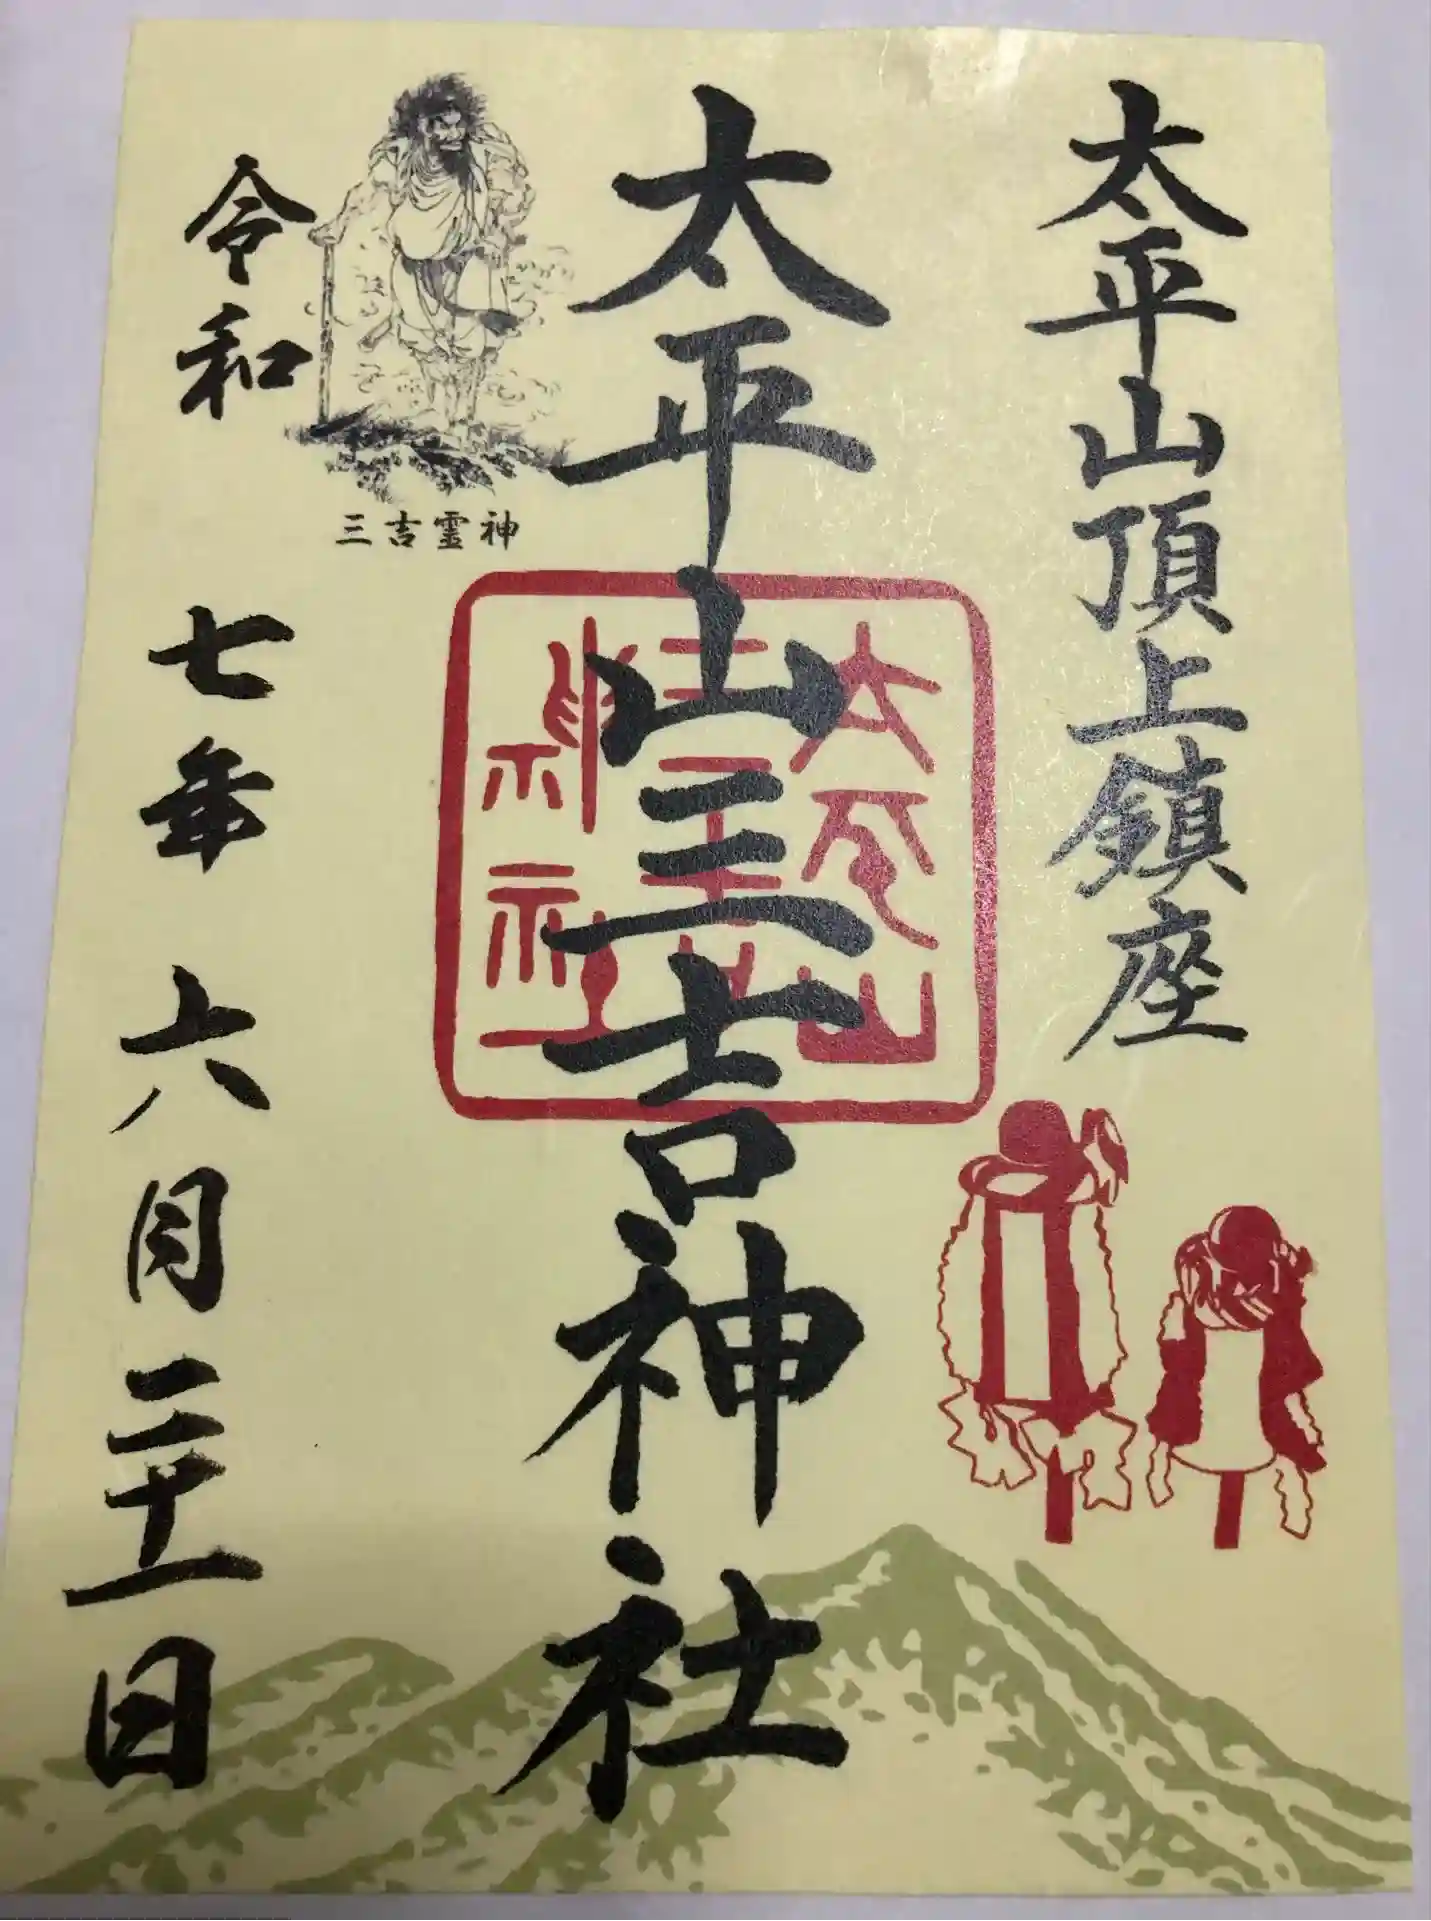 太平山頂上鎮座
太平山三吉神社
太平山
神社
三吉霊神
令和 七年 六月二十一日